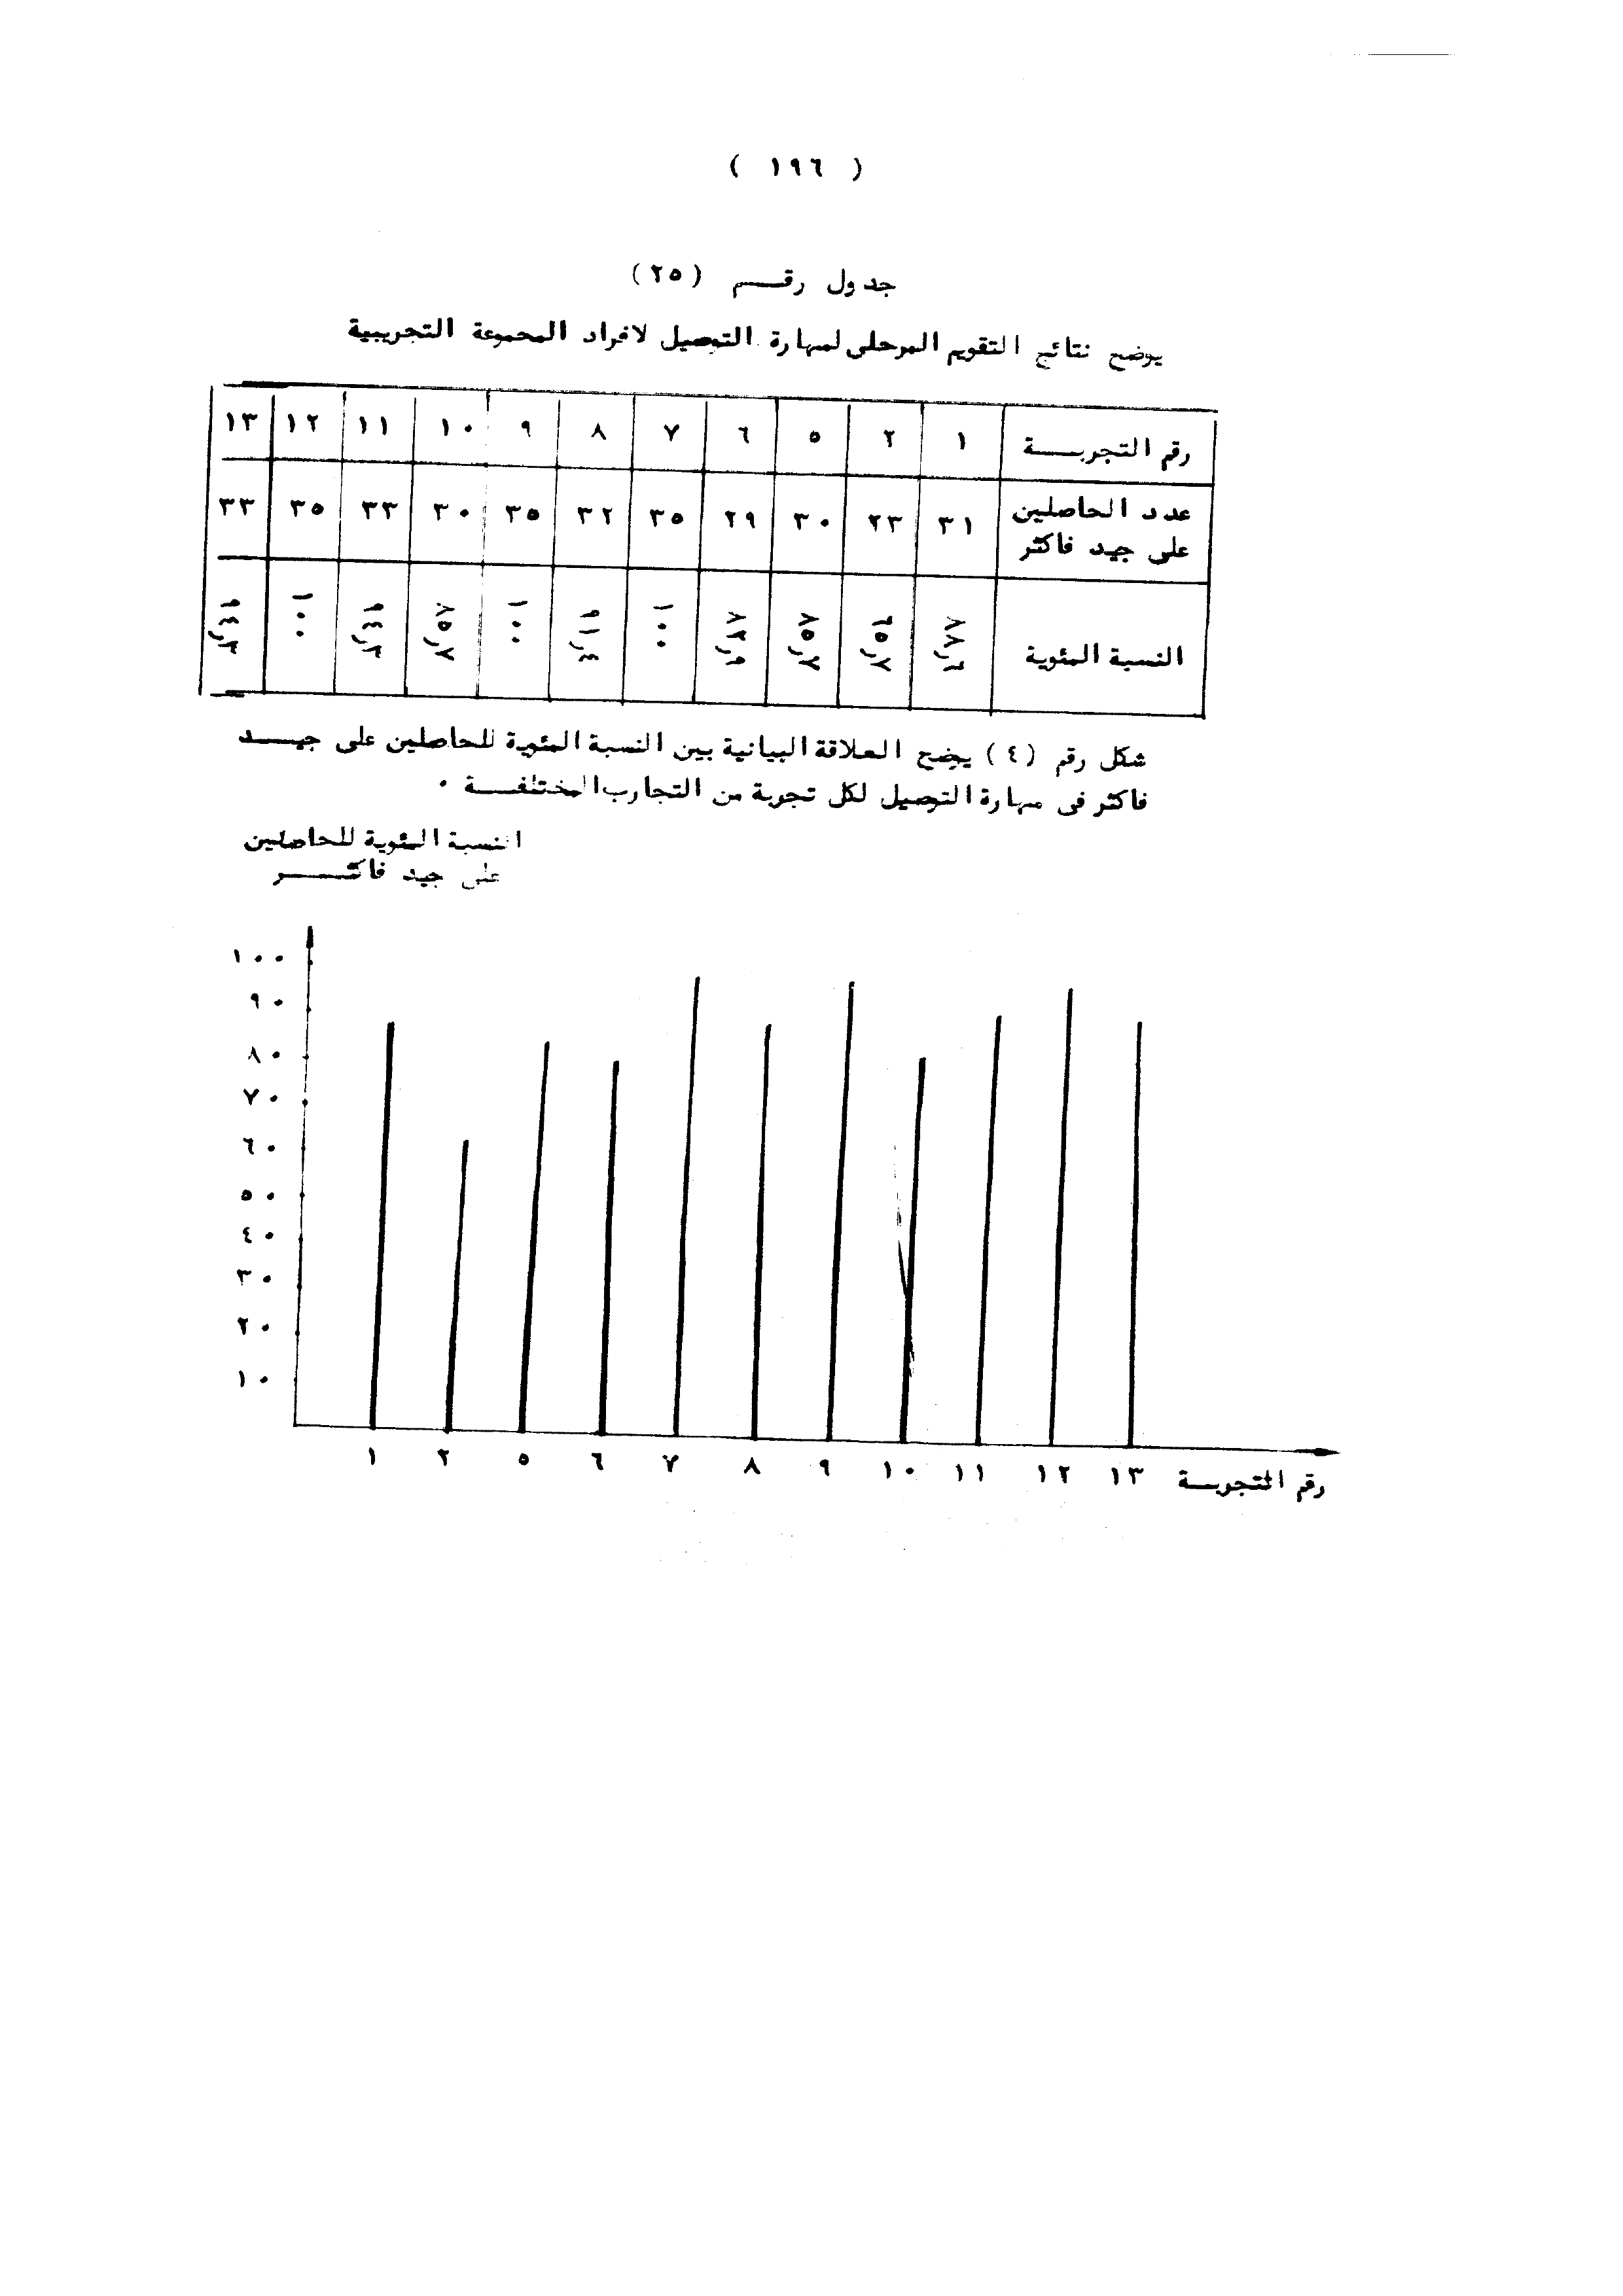 ( ١٩٦ )
جدول رقـــم (٢٥)
يوضح نتائج التقويم المرحلى لمهارة التوصيل لافراد المجموعة التجريبية
رقم التجربــــة ١ ٢ ٥ ٦ ٧ ٨ ٩ ١٠ ١١ ١٢ ١٣
عدد الحاصلين
على جيد فاكثر ٣١ ٢٣ ٣٠ ٢٩ ٣٥ ٣٢ ٣٥ ٣٠ ٣٣ ٣٥ ٣٣
النسبة المئوية ٨٨٫٦ ٦٥٫٧ ٨٥٫٧ ٨٢٫٩ ١٠٠ ٩١٫٤ ١٠٠ ٨٥٫٧ ٩٤٫٣ ١٠٠ ٩٤٫٣
شكل رقم (٤) يوضح العلاقة البيانية بين النسبة المئوية للحاصلين على جيـــد
فاكثر فى مهارة التوصيل لكل تجربة من التجارب المختلفـــة .
النسبة المئوية للحاصلين
على جيد فاكثـــــر
١٠٠
٩٠
٨٠
٧٠
٦٠
٥٠
٤٠
٣٠
٢٠
١٠
١ ٢ ٥ ٦ ٧ ٨ ٩ ١٠ ١١ ١٢ ١٣ رقم التجربــــة